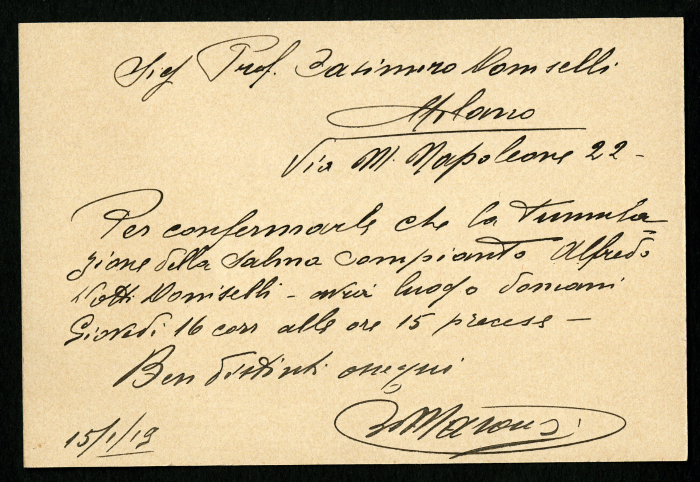 Sig Prof. Casimiro Doniselli
Milano
Via M. Napoleone 22 -
Per confermarle che la tumula
zione della salma compianto Alfredo
Dott. Doniselli - avrà luogo domani
Giovedì 16 corr alle ore 15 precise -
Ben distinti ossequi
15/1/19